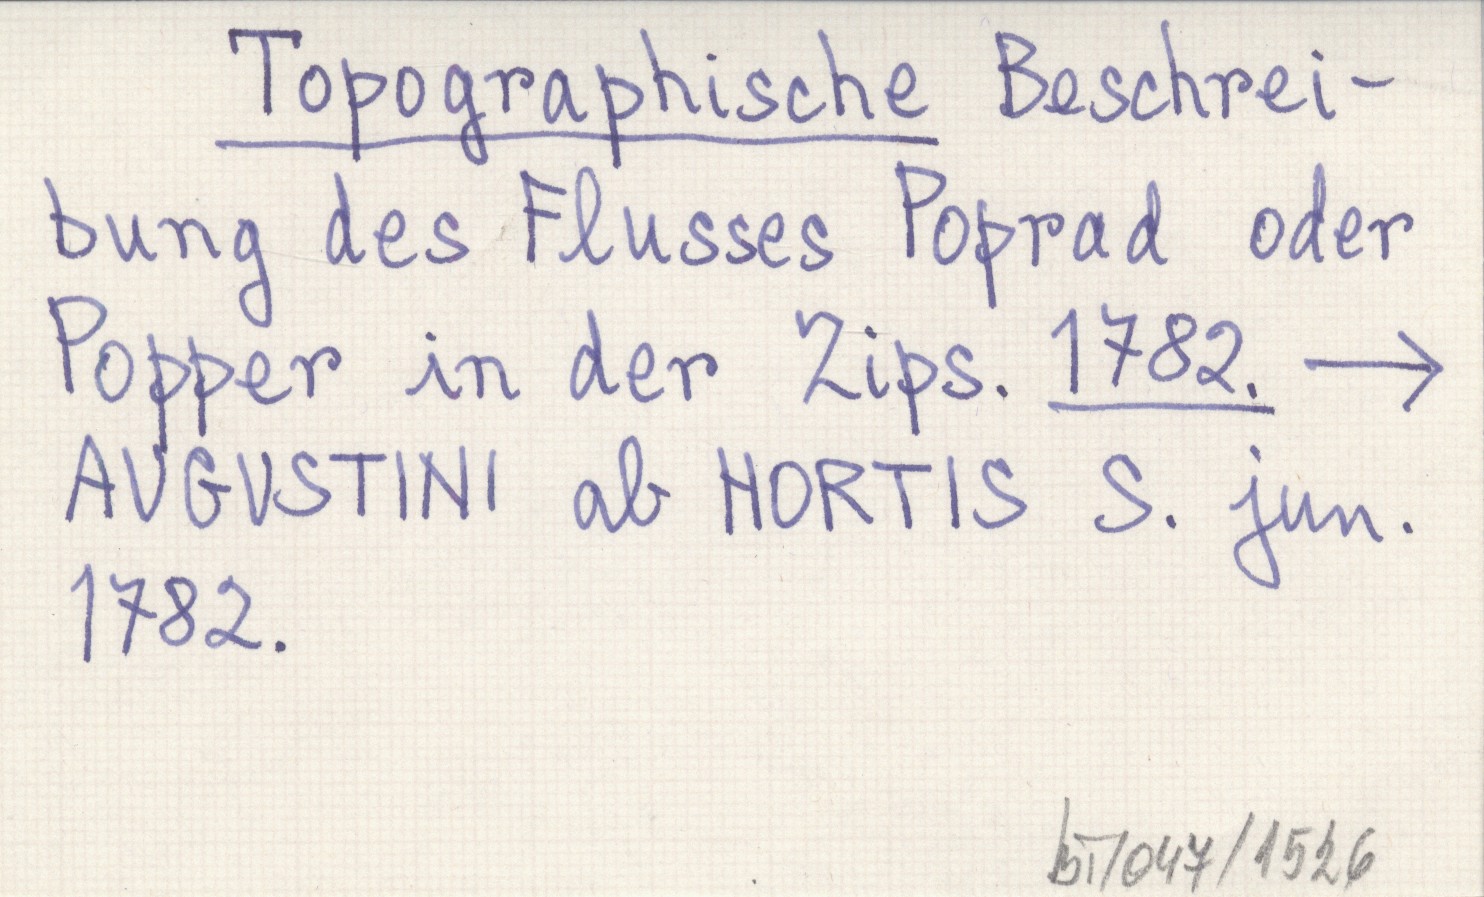 Topographische Beschrei-
bung des Flusses Poprad oder
Popper in der Zips. 1782. →
AUGUSTINI ab HORTIS S. jun.
1782.
bi/047/1526